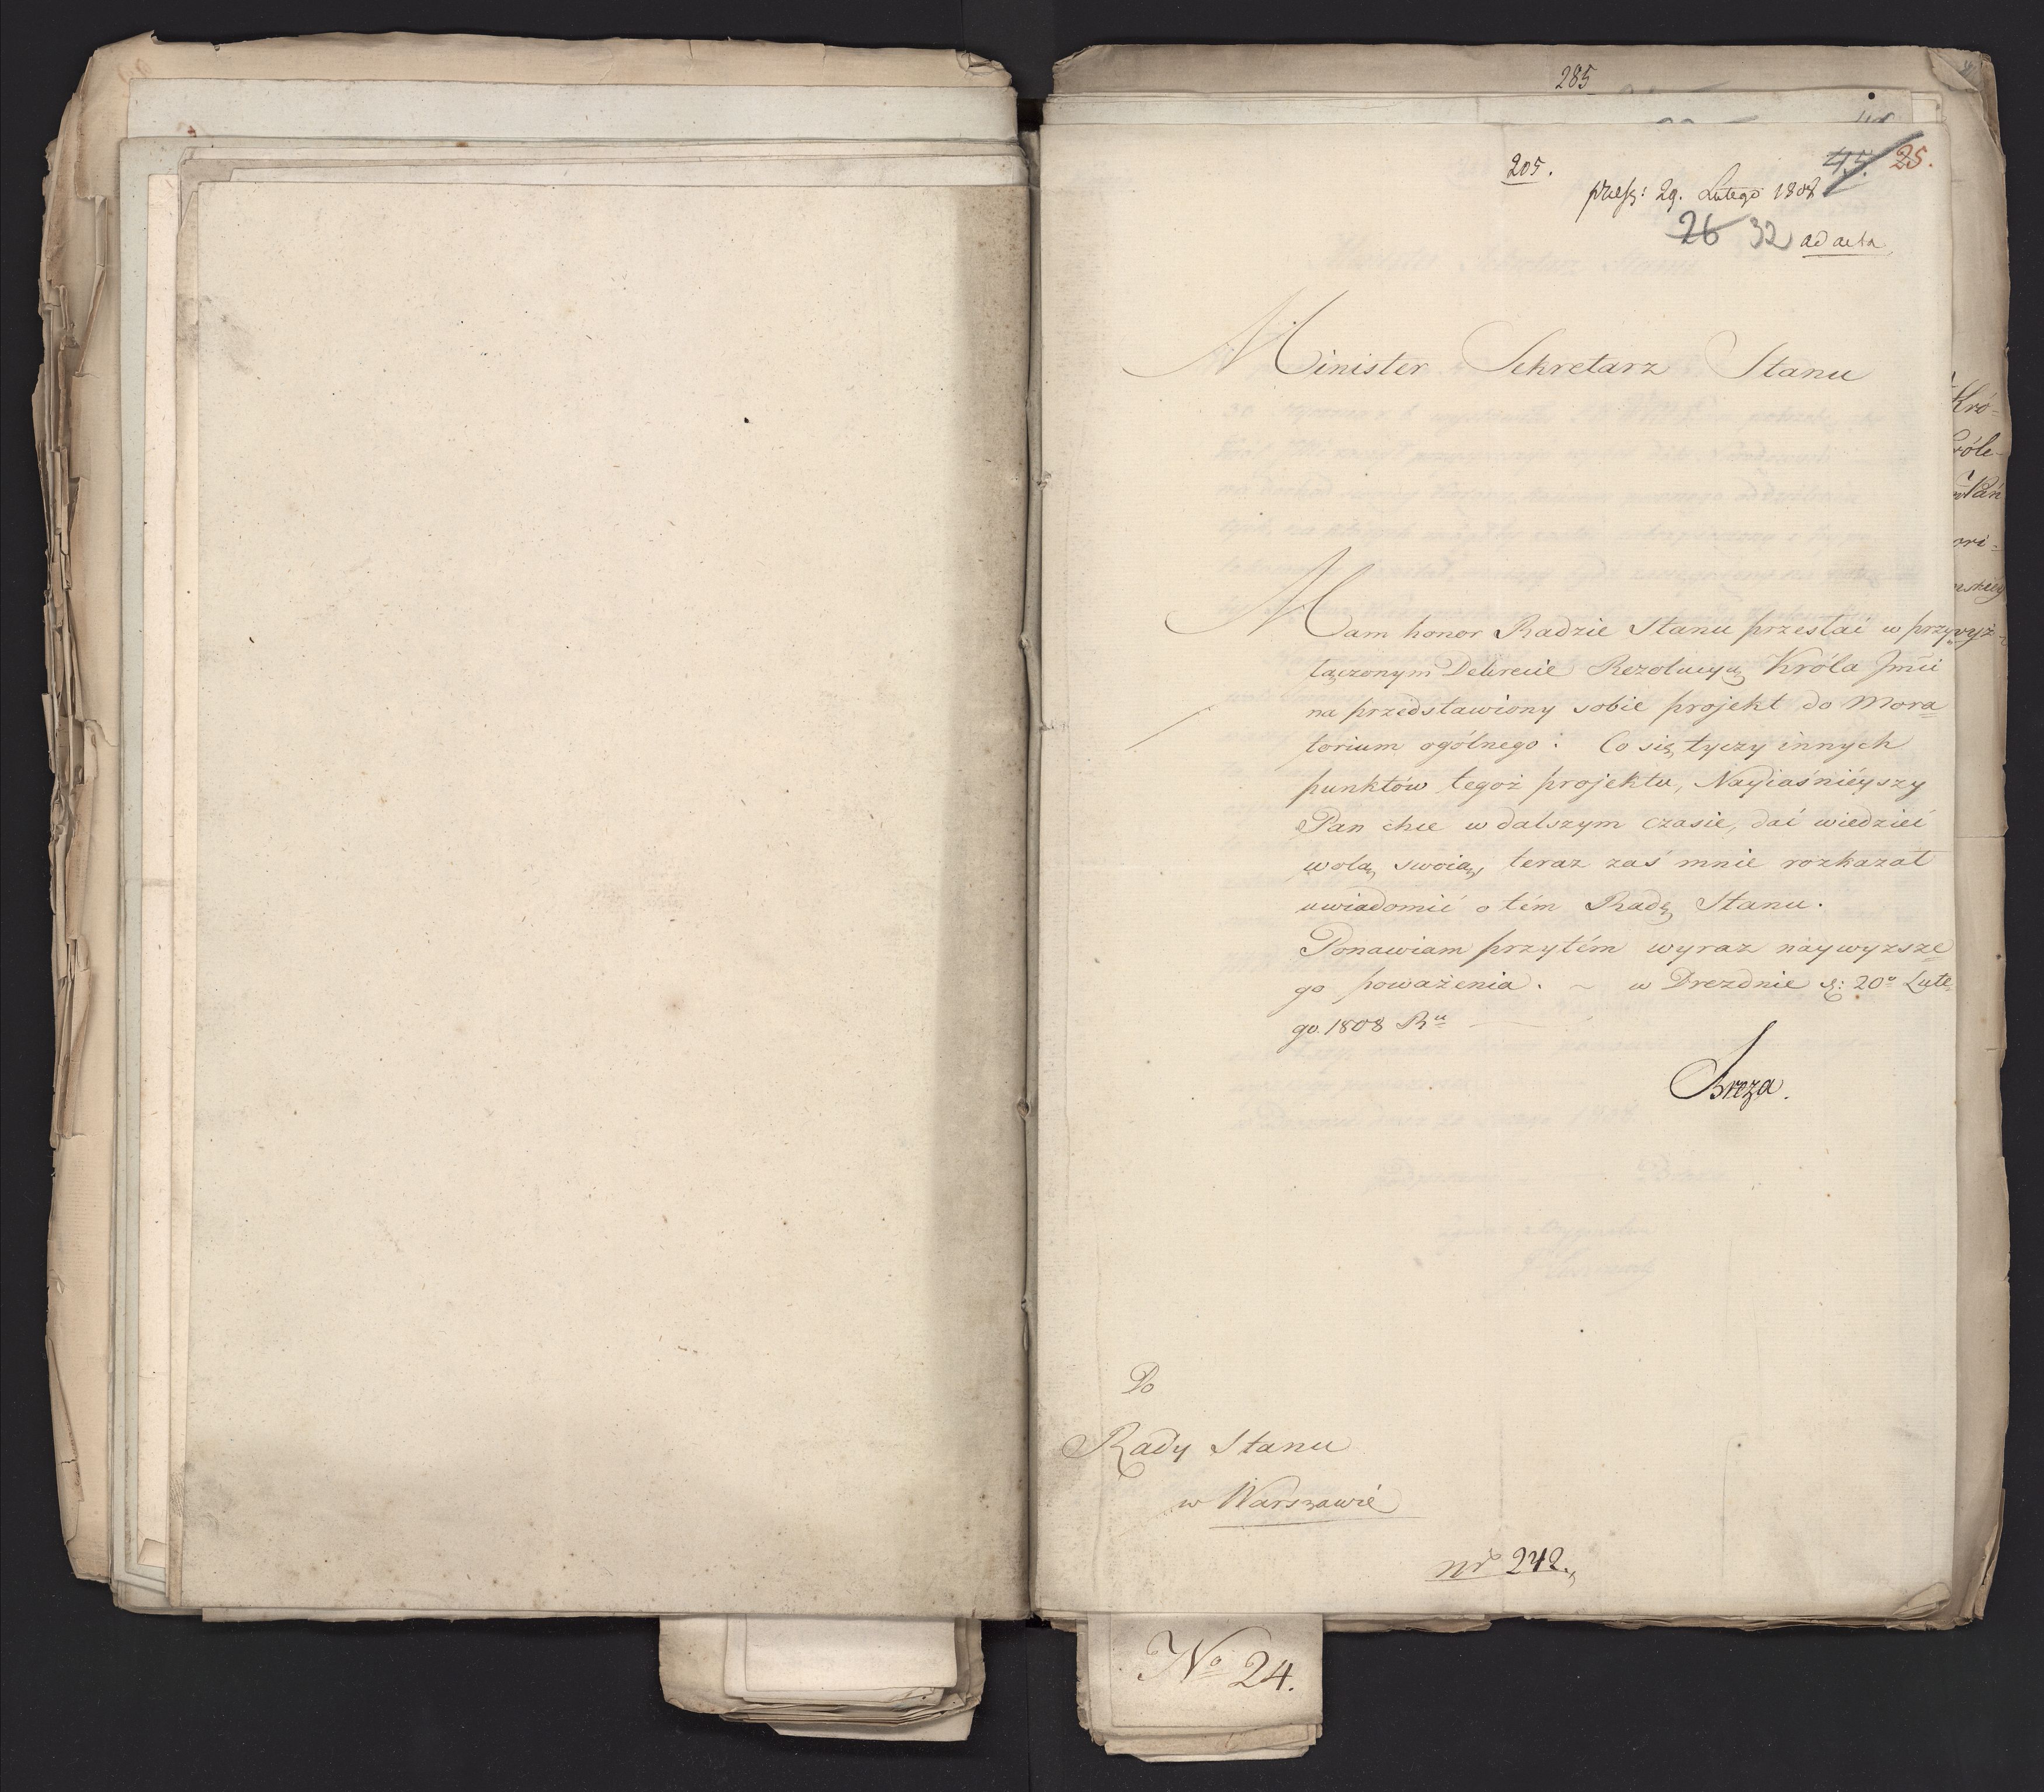 285
205.
45. 25.
pres: 29. Lutego 1808
26 32 ad acta
Minister Sekretarz Stanu
Mam honor Radzie Stanu przesłać w przy
łączonym Dekrecie Rezolucyą Króla Jmci
na przedstawiony sobie projekt do Mora=
torium ogólnego: Co się tyczy innych
punktów tegoż projektu, Nayiaśnieyszy
Pan chce w dalszym czasie, dać wiedzieć
wolą swoią, teraz zaś mnie rozkazał
uwiadomić o tém Radę Stanu.
Ponawiam przytém wyraz naywyzsze=
go poważenia. ~ w Dreznie d: 20º Lute=
go. 1808 Ru
Breza.
Do
Rady Stanu
w Warszawie
nr 242.
No 24.
Kró=
króle-